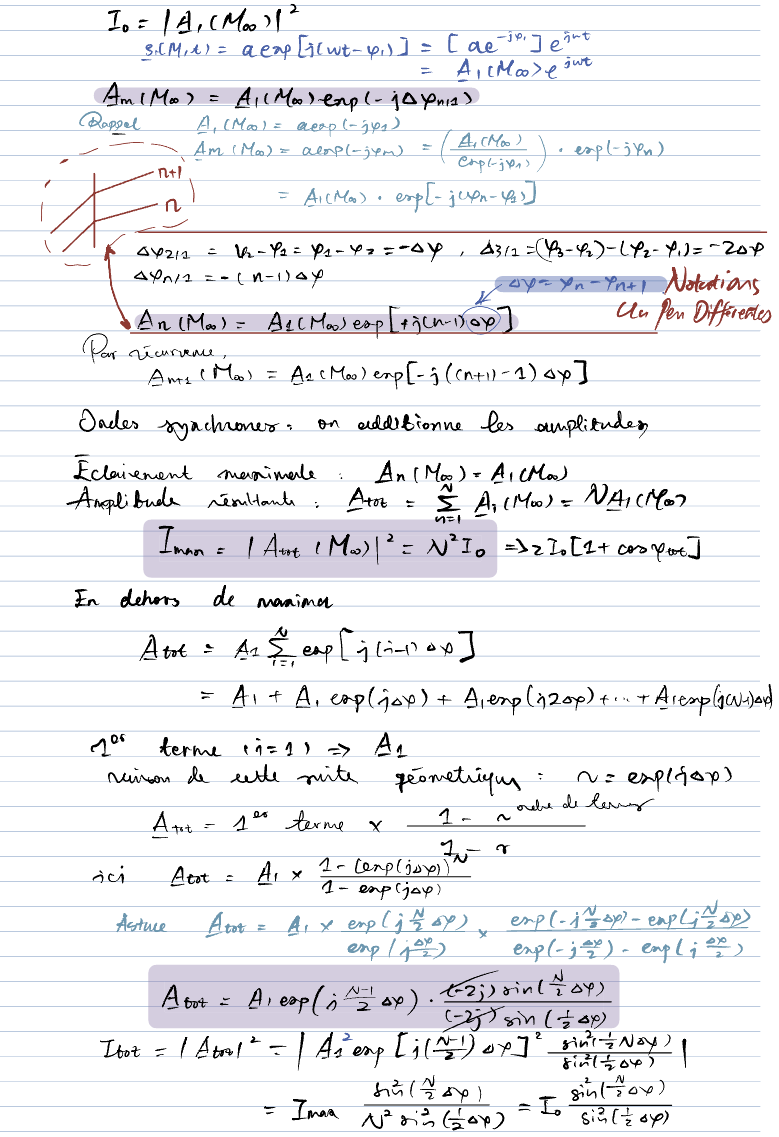 I₀ = |A̲₁(M∞)|²
s₁(M,t) = a exp[j(ωt-φ₁)] = [ae^{-jφ₁}]e^{jωt}
= A̲₁(M∞)e^{jωt}
A̲m(M∞) = A̲₁(M∞) exp(-jΔφn/1)
Rappel A̲₁(M∞) = a exp(-jφ₁)
A̲m(M∞) = a exp(-jφn) = (A̲₁(M∞)/exp(-jφ₁)) · exp(-jφn)
= A̲₁(M∞) · exp[-j(φn-φ₁)]
n+1
n
Δφ2/1 = φ₂-φ₁ = φ₁-φ₂ = -Δφ , Δ3/1 = (φ₃-φ₂)-(φ₂-φ₁) = -2Δφ
Δφn/1 = -(n-1)Δφ
Δφ = φn - φn+1 Notations
Un Peu Différentes
A̲n(M∞) = A̲₁(M∞) exp[+j(n-1)Δφ]
Par récurrence,
A̲n+1(M∞) = A̲₁(M∞) exp[-j((n+1)-1)Δφ]
Ondes synchrones : on additionne les amplitudes
Éclairement maximale : A̲n(M∞) = A̲₁(M∞)
Amplitude résultante : A̲tot = Σ_{n=1}^{N} A̲₁(M∞) = NA̲₁(M∞)
Imax = |A̲tot(M∞)|² = N²I₀ => 2I₀[1 + cosφtot]
En dehors de maximas
A̲tot = A̲₁ Σ_{i=1}^{N} exp[j(i-1)Δφ]
= A̲₁ + A̲₁ exp(jΔφ) + A̲₁exp(j2Δφ) + ... + A̲₁exp(j(N-1)Δφ)
1er terme (i=1) => A̲₁
raison de cette suite géometrique : r = exp(jΔφ)
A̲tot = 1er terme × (1 - r^{nbre de termes})/(1 - r)
ici A̲tot = A̲₁ × (1-(exp(jΔφ))^N)/(1 - exp(jΔφ))
Astuce A̲tot = A̲₁ × exp(j N/2 Δφ)/exp(j Δφ/2) × (exp(-j N/2 Δφ) - exp(j N/2 Δφ))/(exp(-j Δφ/2) - exp(j Δφ/2))
A̲tot = A̲₁ exp(j (N-1)/2 Δφ) · ((-2j) sin(N/2 Δφ))/((-2j) sin(1/2 Δφ))
Itot = |A̲tot|² = |A̲₁² exp[j((N-1)/2)Δφ]² sin²(1/2 NΔφ)/sin²(1/2 Δφ)|
= Imax sin²(N/2 Δφ)/(N² sin²(1/2 Δφ)) = I₀ sin²(N/2 Δφ)/sin²(1/2 Δφ)